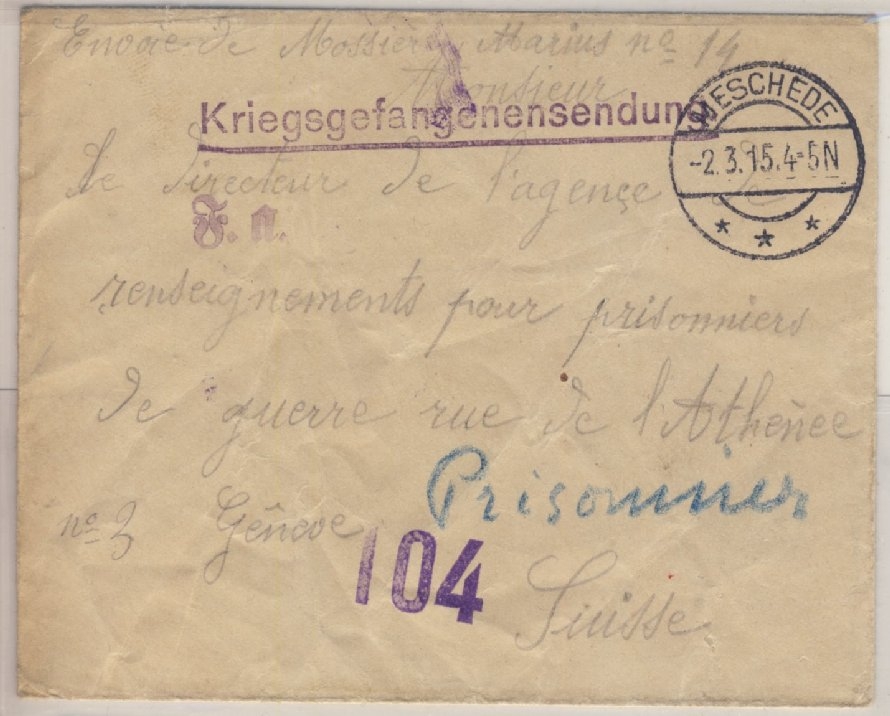 Envoie de Mossière Marius nº 14
Monsieur
Kriegsgefangenensendung
MESCHEDE
-2.3.15.4-5N
Le Directeur de l'agençe de
F. a.
renseignements pour prisonniers
de guerre rue de l'Athenée
Prisonnier
nº 3 Gêneve
104
Suisse